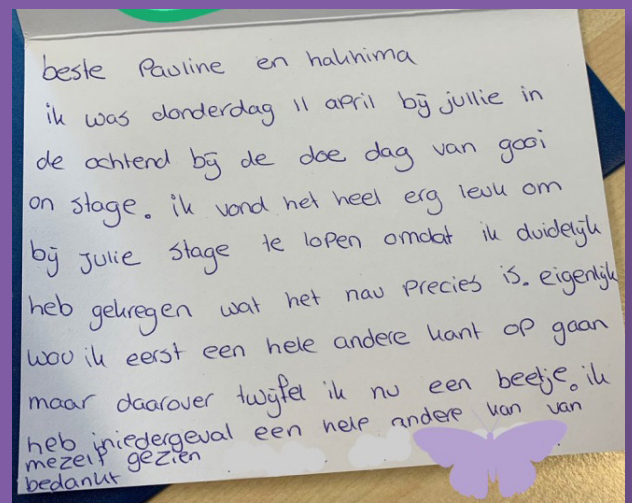 beste Pauline en hakhima
ik was donderdag 11 april bij jullie in
de ochtend bij de doe dag van gooi
on stage. ik vond het heel erg leuk om
bij julie stage te lopen omdat ik duidelijk
heb gekregen wat het nau precies is. eigenlijk
wou ik eerst een hele andere kant op gaan
maar daarover twijfel ik nu een beetje. ik
heb iniedergeval een hele andere kan van
mezelf gezien
bedankt